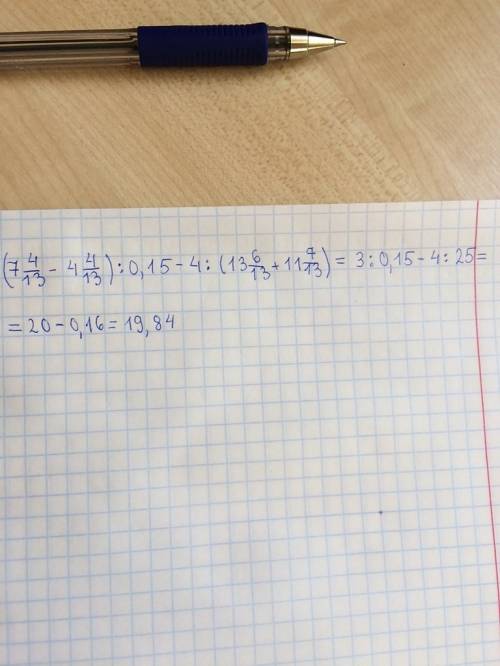 (7 4/13 - 4 4/13) : 0,15 - 4 : (13 6/13 + 11 7/13) = 3 : 0,15 - 4 : 25 =
= 20 - 0,16 = 19,84